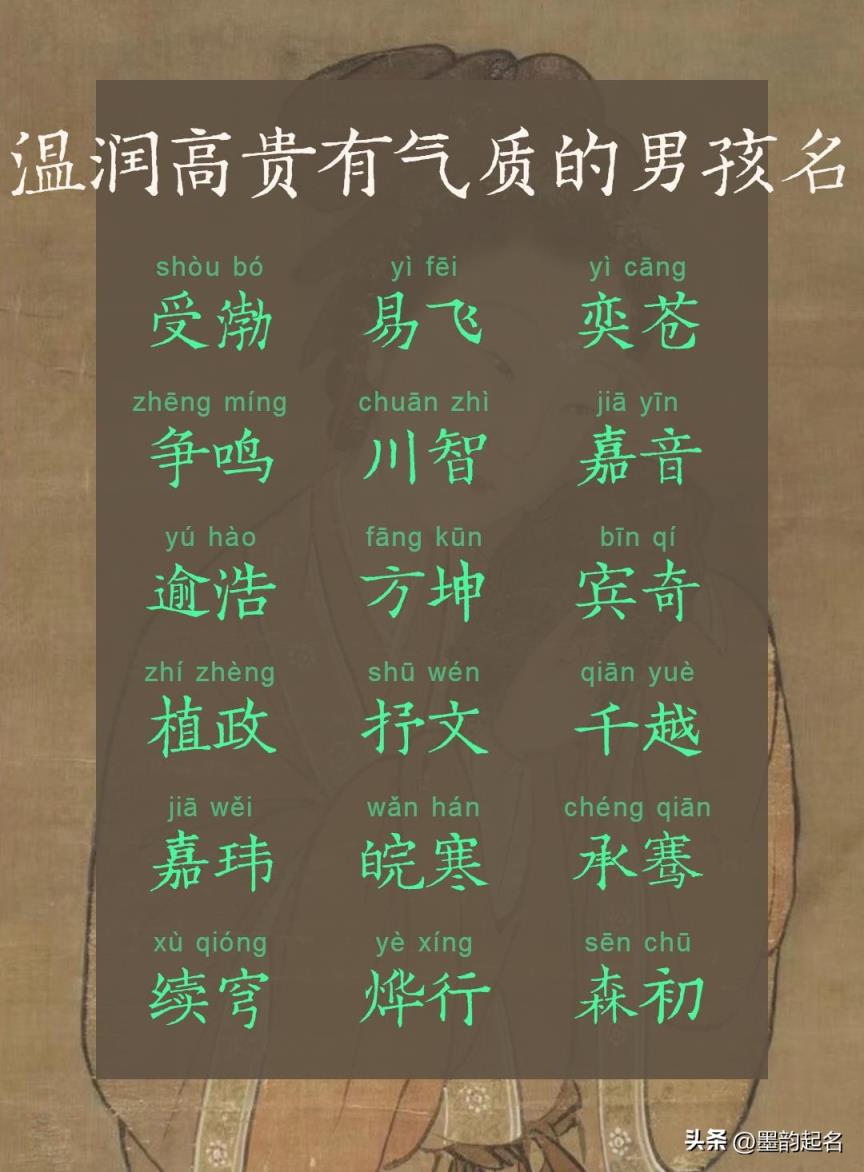 温润高贵有气质的男孩名
shòu bó yì fēi yì cāng
受渤 易飞 奕苍
zhēng míng chuān zhì jiā yīn
争鸣 川智 嘉音
yú hào fāng kūn bīn qí
逾浩 方坤 宾奇
zhí zhèng shū wén qiān yuè
植政 抒文 千越
jiā wěi wǎn hán chéng qiān
嘉玮 皖寒 承骞
xù qióng yè xíng sēn chū
续穹 烨行 森初
头条 @墨韵起名